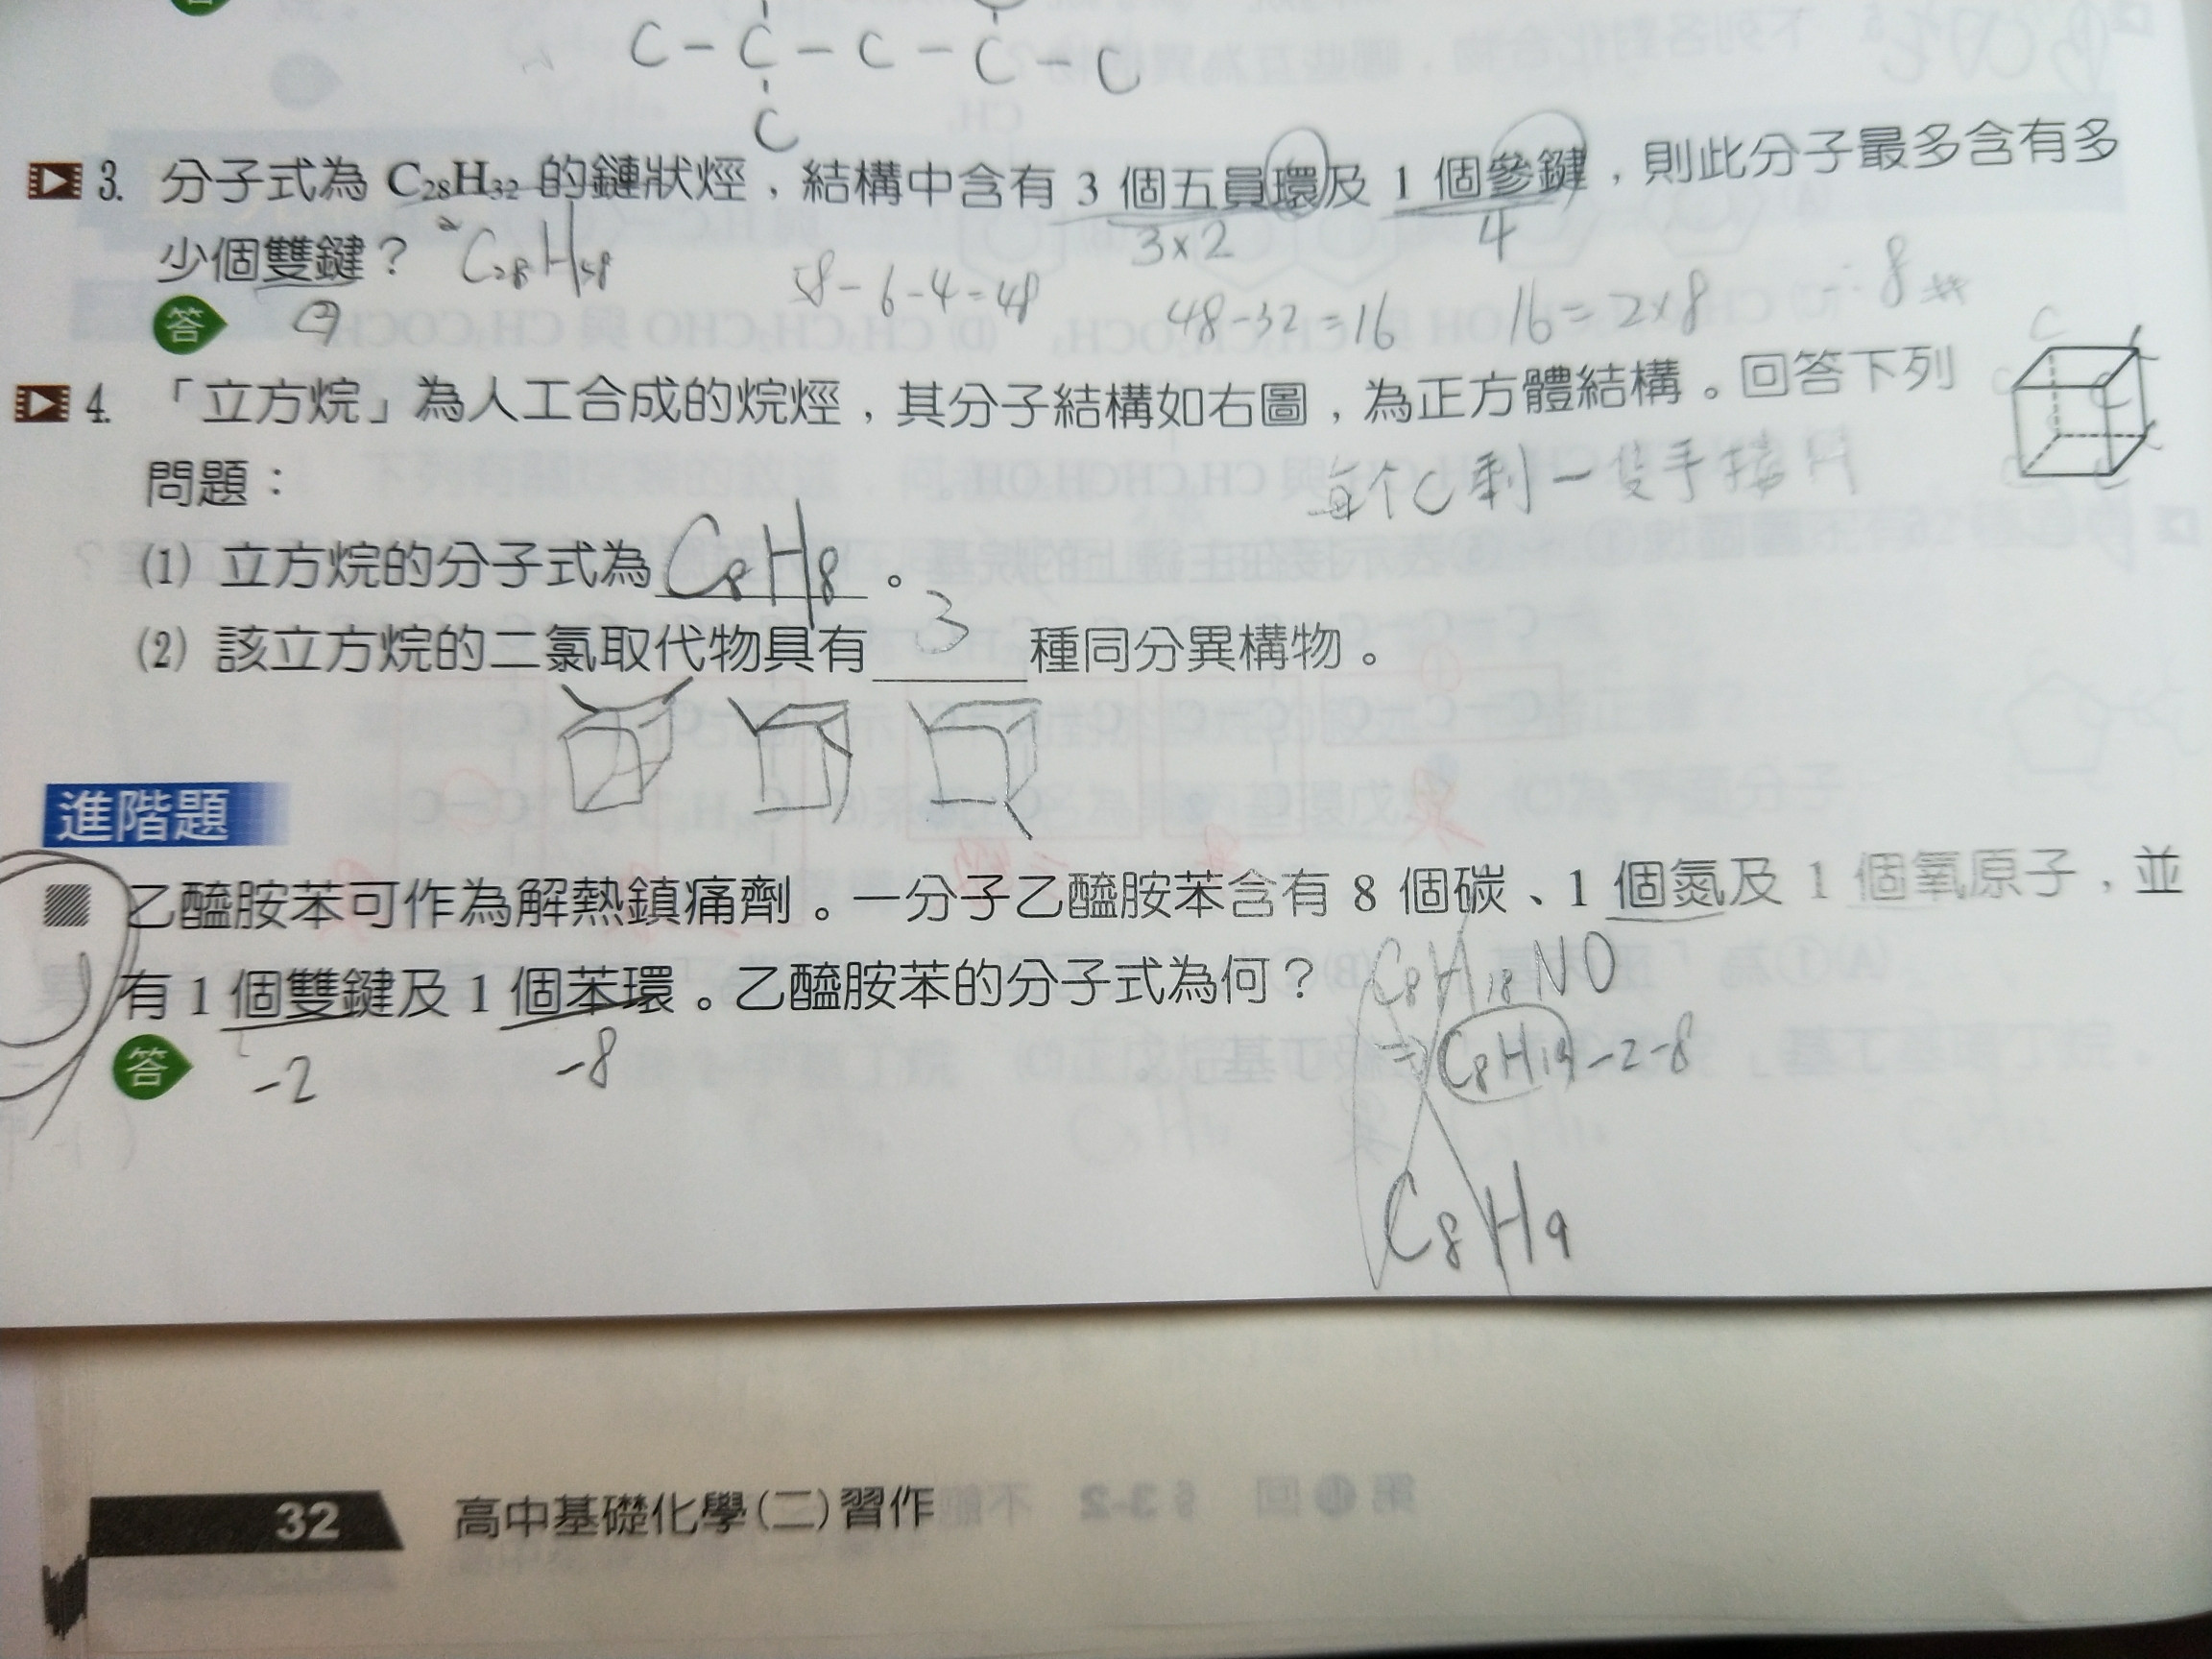 C - C - C - C - C
C
3. 分子式為 C₂₈H₃₂ 的鏈狀烴，結構中含有 3 個五員環及 1 個參鍵，則此分子最多含有多
3×2 4
少個雙鍵？ C₂₈H₅₈
58-6-4=48 48-32=16 16=2×8 ∴8
答
4. 「立方烷」為人工合成的烷烴，其分子結構如右圖，為正方體結構。回答下列
問題：
每个C剩一隻手接H
(1) 立方烷的分子式為 C₈H₈ 。
(2) 該立方烷的二氯取代物具有 3 種同分異構物。
進階題
乙醯胺苯可作為解熱鎮痛劑。一分子乙醯胺苯含有 8 個碳、1 個氮及 1 個氧原子，並
有 1 個雙鍵及 1 個苯環。乙醯胺苯的分子式為何？ C₈H₁₈NO
答 -2 -8 ⇒ C₈H₁₉-2-8
C₈H₉
32 高中基礎化學(二)習作